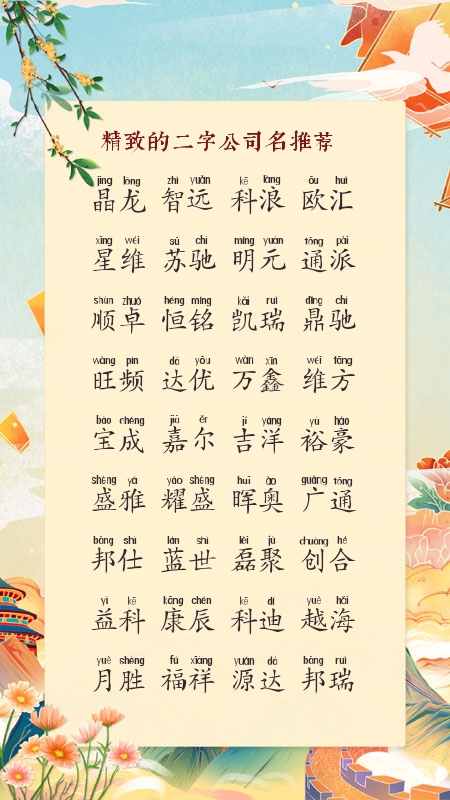 精致的二字公司名推荐
jīng lóng zhì yuǎn kē làng ōu huì
晶龙 智远 科浪 欧汇
xīng wéi sū chí míng yuán tōng pài
星维 苏驰 明元 通派
shùn zhuó héng míng kǎi ruì dǐng chí
顺卓 恒铭 凯瑞 鼎驰
wàng pín dá yōu wàn xīn wéi fāng
旺频 达优 万鑫 维方
bǎo chéng jiā ěr jí yáng yù háo
宝成 嘉尔 吉洋 裕豪
shèng yǎ yào shèng huī ào guǎng tōng
盛雅 耀盛 晖奥 广通
bāng shì lán shì lěi jù chuàng hé
邦仕 蓝世 磊聚 创合
yì kē kāng chén kē dí yuè hǎi
益科 康辰 科迪 越海
yuè shèng fú xiáng yuán dá bāng ruì
月胜 福祥 源达 邦瑞